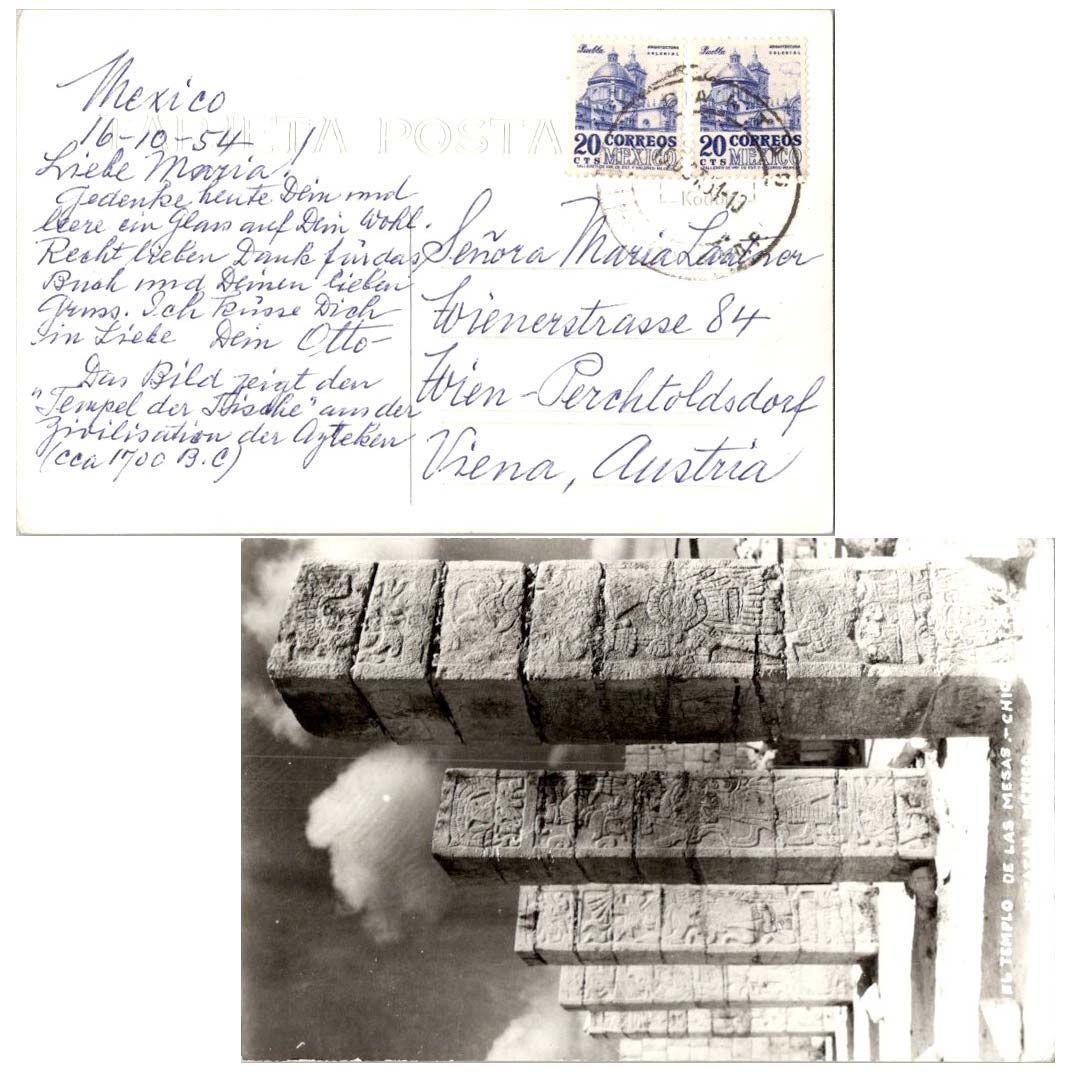 Mexico
16-10-54
TARJETA POSTA
Liebe Maria!
Gedenke heute Dein und
leere ein Glas auf Dein Wohl.
Recht lieben Dank für das
Buch und Deinen lieben
Gruss. Ich küsse Dich
in Liebe Dein Otto-
Das Bild zeigt den
"Tempel der Tische" aus der
Zivilisation der Azteken
(cca 1700 B.C)
Puebla ARQUITECTURA COLONIAL
20 CTS CORREOS MEXICO
Puebla ARQUITECTURA COLONIAL
20 CTS CORREOS MEXICO
Señora Maria Lantner
Wienerstrasse 84
Wien-Perchtoldsdorf
Viena, Austria
EL TEMPLO DE LAS MESAS - CHIC